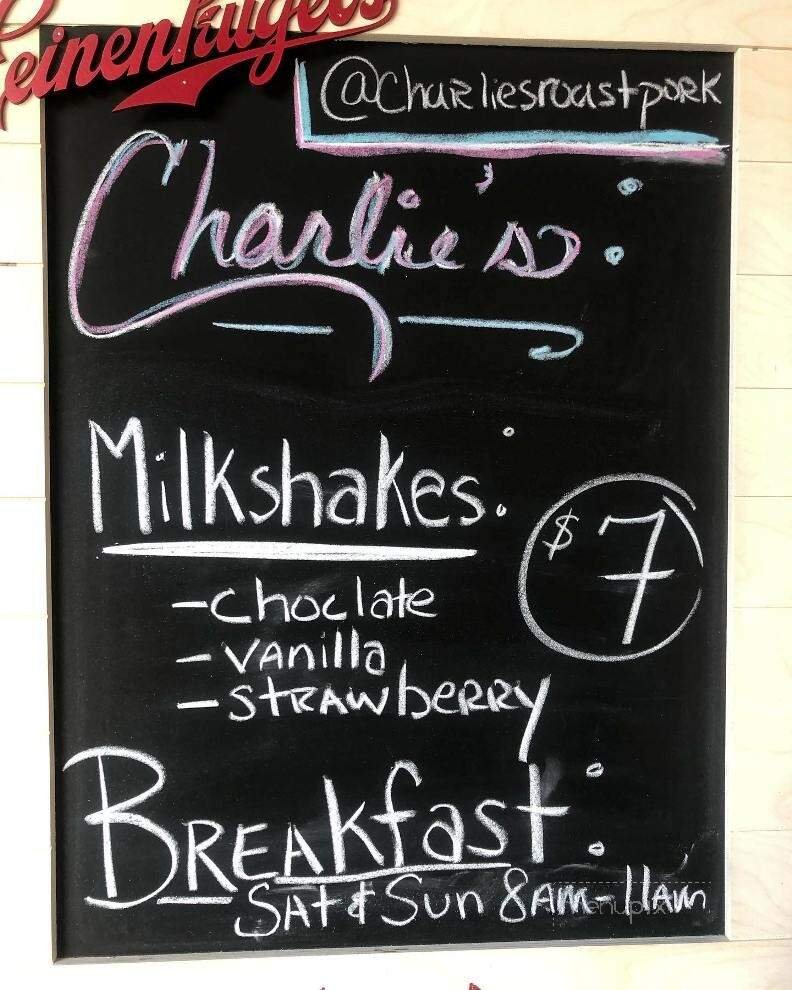 Leinenkugel's
@Charliesroastpork
Charlie's:
Milkshakes:
$7
-choclate
-vanilla
-strawberry
Breakfast:
Sat & Sun 8am-11am
menupix